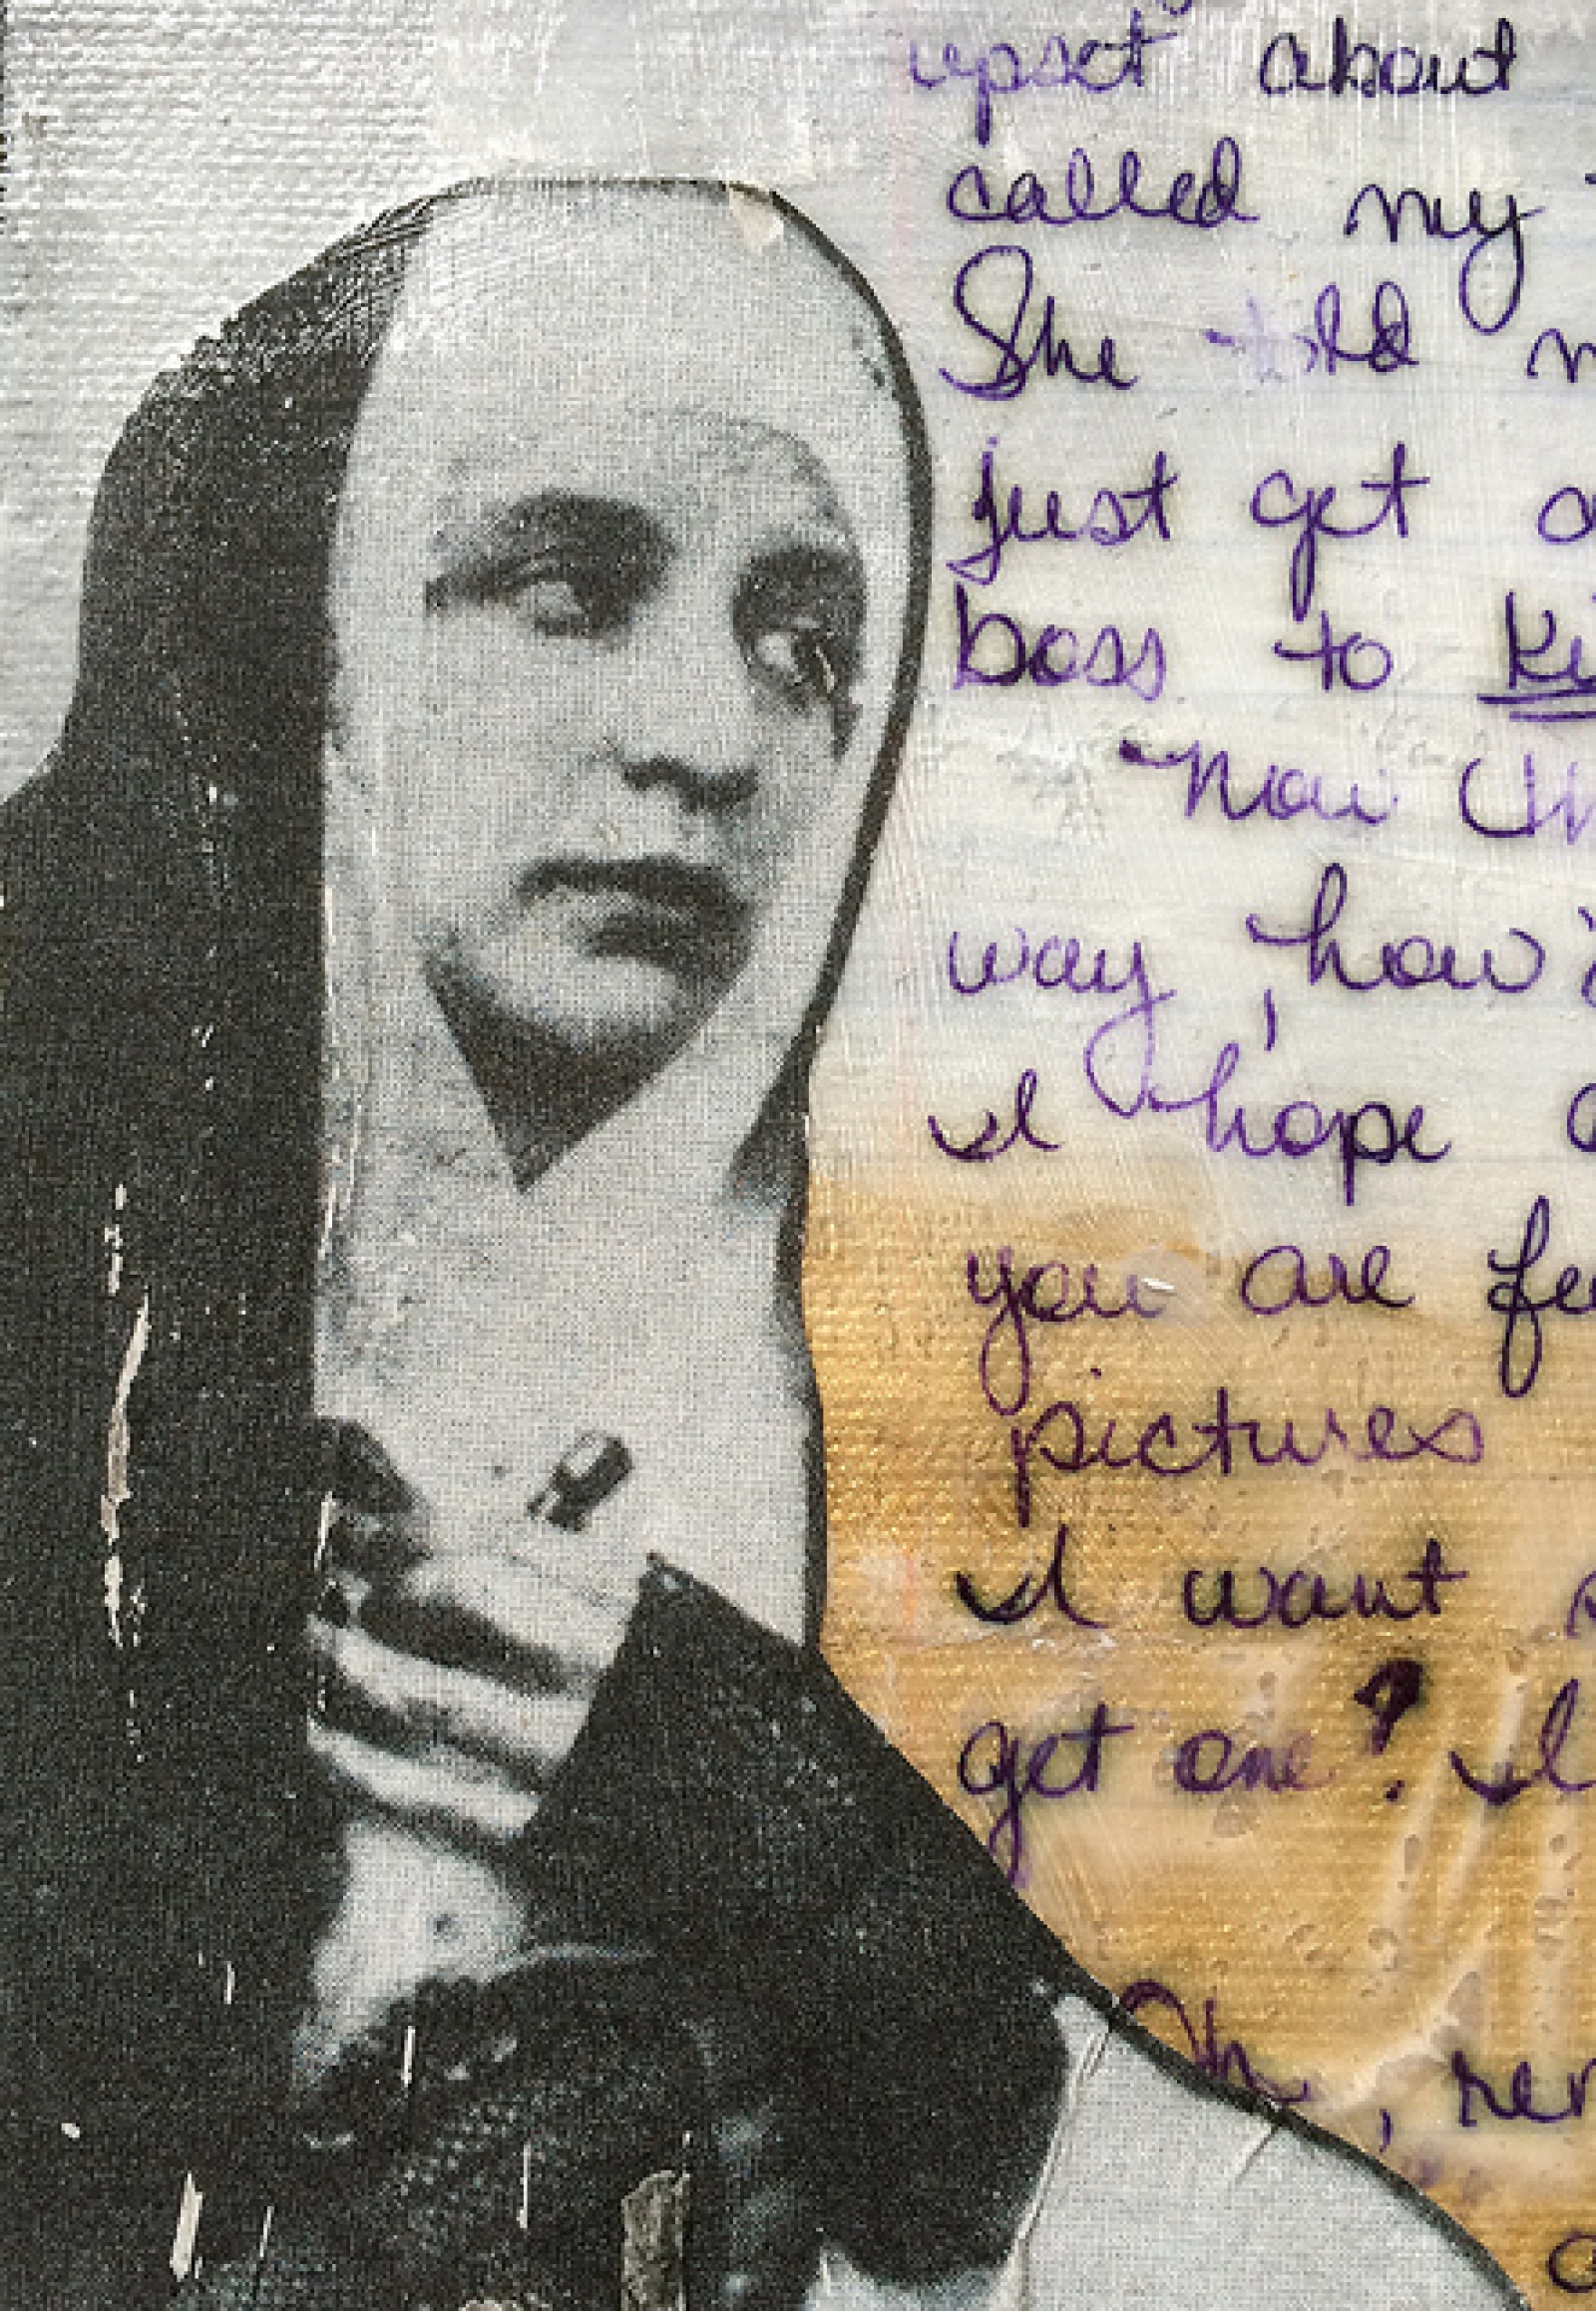 upset about
called my
She told
just get
boss to
Now
way, how's
I hope
you are
pictures
I want
get one? I
Oh,